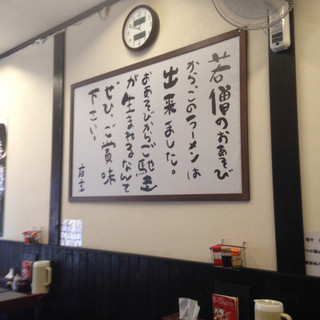 若僧のおあそび
から、このラーメンは
出来ました。
おあそびからご馳走
が生まれるなんて
ぜひ、ご賞味
下さい。
店主